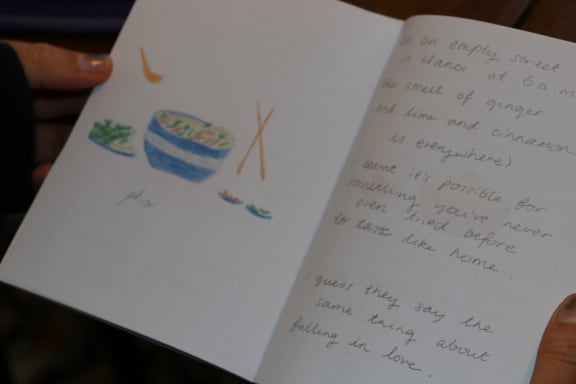 phở
an empty street
Hanoi at 6 a m
smell of ginger
lime and cinnamon
is everywhere)
learnt it's possible for
something you've never
even tried before
to taste like home.
guess they say the
same thing about
falling in love.